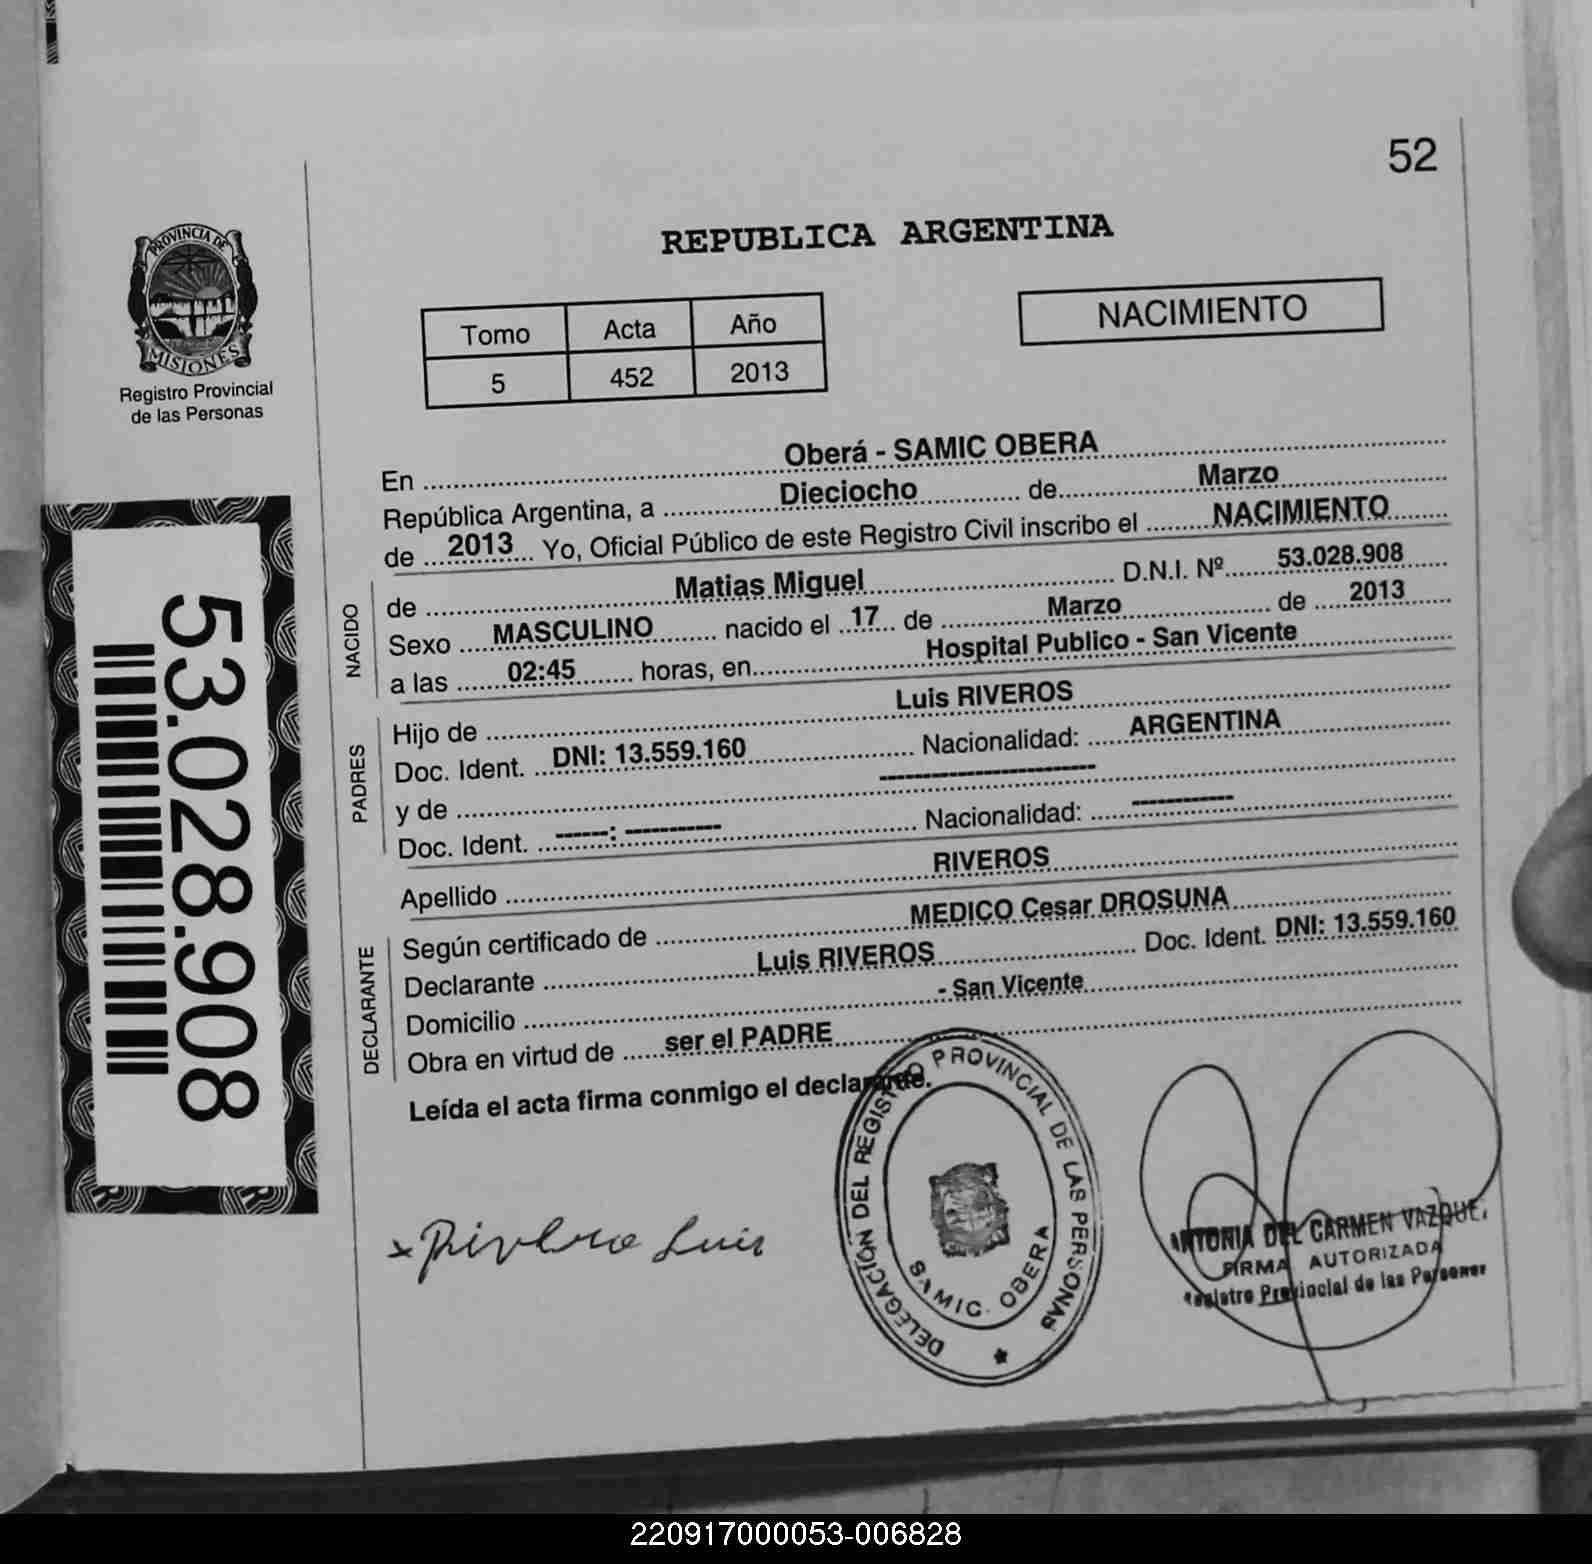 52
REPUBLICA ARGENTINA
PROVINCIA DE
MISIONES
Registro Provincial
de las Personas
Tomo Acta Año
5 452 2013
NACIMIENTO
53.028.908
En Oberá - SAMIC OBERA
República Argentina, a Dieciocho de Marzo
de 2013 Yo, Oficial Público de este Registro Civil inscribo el NACIMIENTO
NACIDO
de Matias Miguel D.N.I. Nº 53.028.908
Sexo MASCULINO nacido el 17 de Marzo de 2013
a las 02:45 horas, en Hospital Publico - San Vicente
PADRES
Hijo de Luis RIVEROS
Doc. Ident. DNI: 13.559.160 Nacionalidad: ARGENTINA
y de --------------------
Doc. Ident. ------: ----------- Nacionalidad: ------------
Apellido RIVEROS
DECLARANTE
Según certificado de MEDICO Cesar DROSUNA
Declarante Luis RIVEROS Doc. Ident. DNI: 13.559.160
Domicilio - San Vicente
Obra en virtud de ser el PADRE
Leída el acta firma conmigo el declarante.
DELEGACIÓN DEL REGISTRO PROVINCIAL DE LAS PERSONAS
SAMIC. OBERA
Luis
DEL CARMEN VAZQUE
FIRMA AUTORIZADA
Registro Provincial de las Personas
220917000053-006828